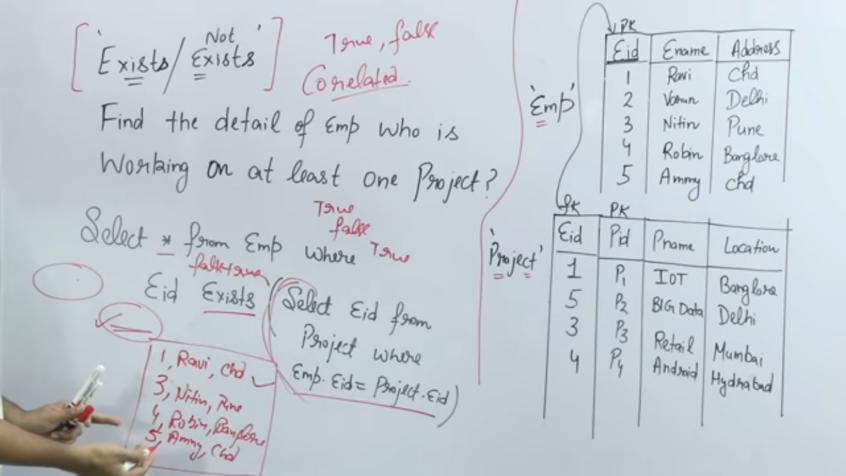 'Exists / Not Exists'
True, false
Corelated.
Find the detail of Emp who is
Working on at least one Project?
Select * from Emp where
True
false
True
false true
Eid Exists (Select Eid from
Project where
Emp.Eid = Project.Eid)
1, Ravi, Chd
3, Nitin, Pune
4, Robin, Banglore
5, Ammy, Chd
'Emp'
PK
Eid Ename Address
1 Ravi Chd
2 Varun Delhi
3 Nitin Pune
4 Robin Banglore
5 Ammy Chd
'Project'
fK PK
Eid Pid Pname Location
1 P1 IOT Banglore
5 P2 BIG Data Delhi
3 P3 Retail Mumbai
4 P4 Android Hydrabad